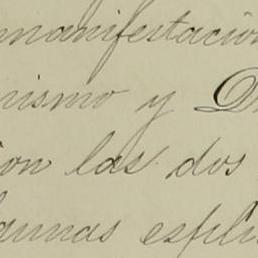 manifestacion
nismo y D
ion las dos
gunas esplic